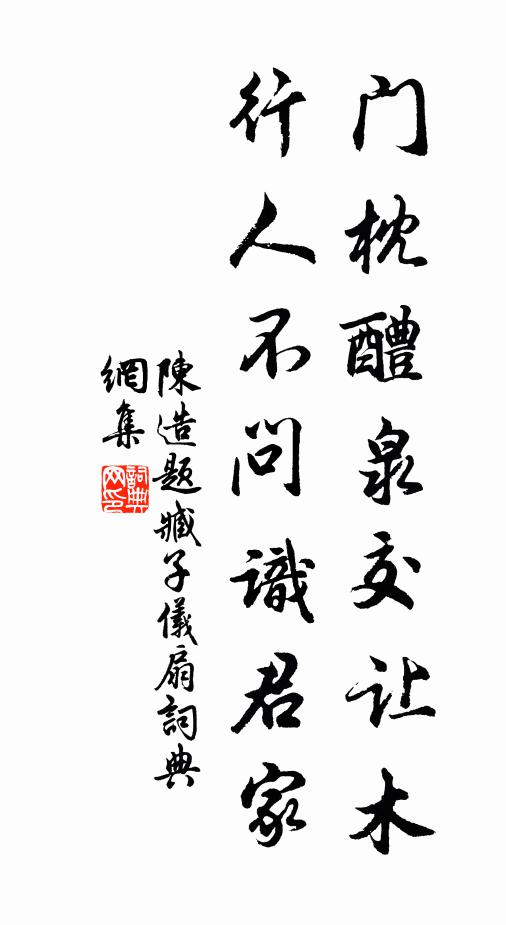 门枕醴泉交让木
行人不问識君家
陳造题臧子儀扇詞典
網集
詞典網印